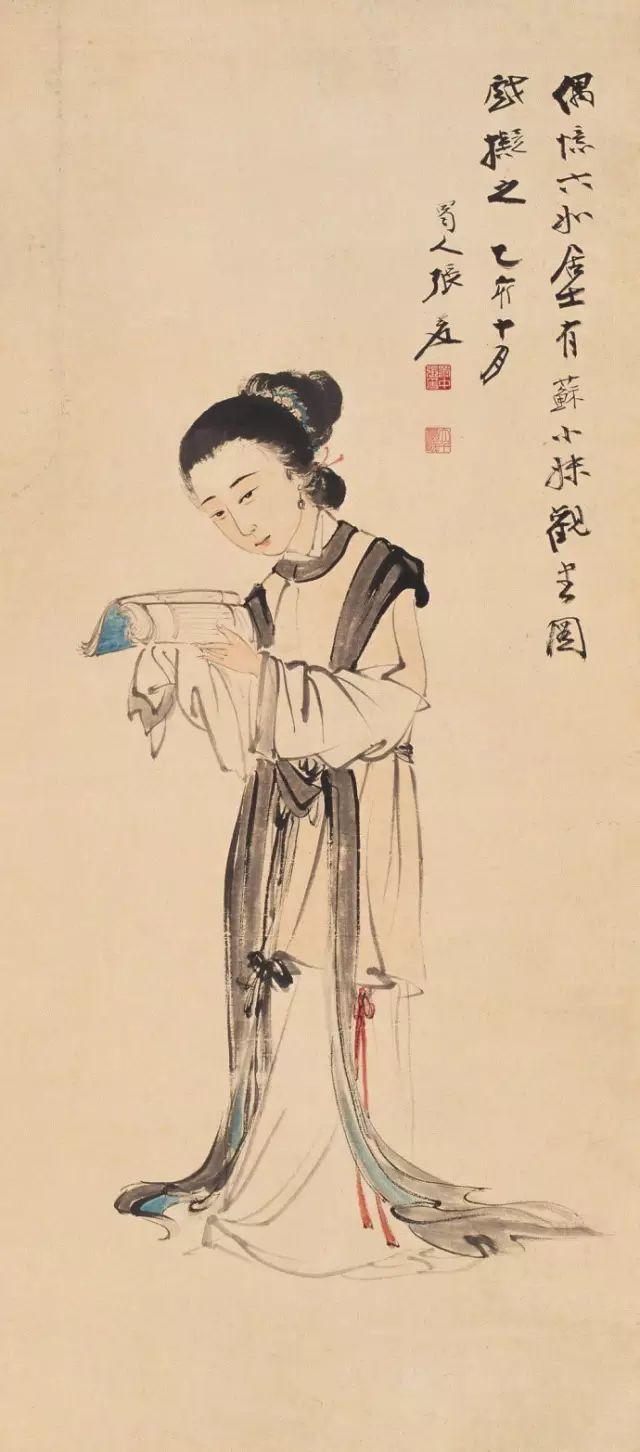 偶憶六如居士有蘇小妹觀書圖
戲擬之 乙亥十月
蜀人張爰